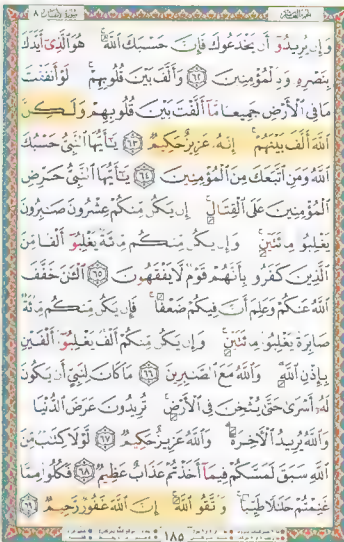 سورة الأنفال ٨
وَإِن يُرِيدُوٓا۟ أَن يَخْدَعُوكَ فَإِنَّ حَسْبَكَ ٱللَّهُ ۚ هُوَ ٱلَّذِىٓ أَيَّدَكَ
بِنَصْرِهِۦ وَبِٱلْمُؤْمِنِينَ ٦٢ وَأَلَّفَ بَيْنَ قُلُوبِهِمْ ۚ لَوْ أَنفَقْتَ
مَا فِى ٱلْأَرْضِ جَمِيعًا مَّآ أَلَّفْتَ بَيْنَ قُلُوبِهِمْ وَلَـٰكِنَّ
ٱللَّهَ أَلَّفَ بَيْنَهُمْ ۚ إِنَّهُۥ عَزِيزٌ حَكِيمٌ ٦٣ يَـٰٓأَيُّهَا ٱلنَّبِىُّ حَسْبُكَ
ٱللَّهُ وَمَنِ ٱتَّبَعَكَ مِنَ ٱلْمُؤْمِنِينَ ٦٤ يَـٰٓأَيُّهَا ٱلنَّبِىُّ حَرِّضِ
ٱلْمُؤْمِنِينَ عَلَى ٱلْقِتَالِ ۚ إِن يَكُن مِّنكُمْ عِشْرُونَ صَـٰبِرُونَ
يَغْلِبُوا۟ مِا۟ئَتَيْنِ ۚ وَإِن يَكُن مِّنكُم مِّا۟ئَةٌ يَغْلِبُوٓا۟ أَلْفًا مِّنَ
ٱلَّذِينَ كَفَرُوا۟ بِأَنَّهُمْ قَوْمٌ لَّا يَفْقَهُونَ ٦٥ ٱلْـَٔـٰنَ خَفَّفَ
ٱللَّهُ عَنكُمْ وَعَلِمَ أَنَّ فِيكُمْ ضَعْفًا ۚ فَإِن يَكُن مِّنكُم مِّا۟ئَةٌ
صَابِرَةٌ يَغْلِبُوا۟ مِا۟ئَتَيْنِ ۚ وَإِن يَكُن مِّنكُمْ أَلْفٌ يَغْلِبُوٓا۟ أَلْفَيْنِ
بِإِذْنِ ٱللَّهِ ۗ وَٱللَّهُ مَعَ ٱلصَّـٰبِرِينَ ٦٦ مَا كَانَ لِنَبِىٍّ أَن يَكُونَ
لَهُۥٓ أَسْرَىٰ حَتَّىٰ يُثْخِنَ فِى ٱلْأَرْضِ ۚ تُرِيدُونَ عَرَضَ ٱلدُّنْيَا
وَٱللَّهُ يُرِيدُ ٱلْـَٔاخِرَةَ ۗ وَٱللَّهُ عَزِيزٌ حَكِيمٌ ٦٧ لَّوْلَا كِتَـٰبٌ مِّنَ
ٱللَّهِ سَبَقَ لَمَسَّكُمْ فِيمَآ أَخَذْتُمْ عَذَابٌ عَظِيمٌ ٦٨ فَكُلُوا۟ مِمَّا
غَنِمْتُمْ حَلَـٰلًا طَيِّبًا ۚ وَٱتَّقُوا۟ ٱللَّهَ ۚ إِنَّ ٱللَّهَ غَفُورٌ رَّحِيمٌ ٦٩
١٨٥